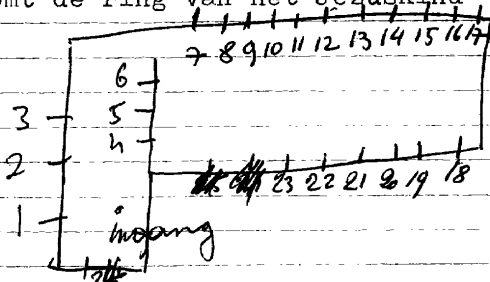 omt de ring van het Jezuskind
7 8 9 10 11 12 13 14 15 16 17
6
3 5
2 4
23 22 21 20 19 18
1 ingang